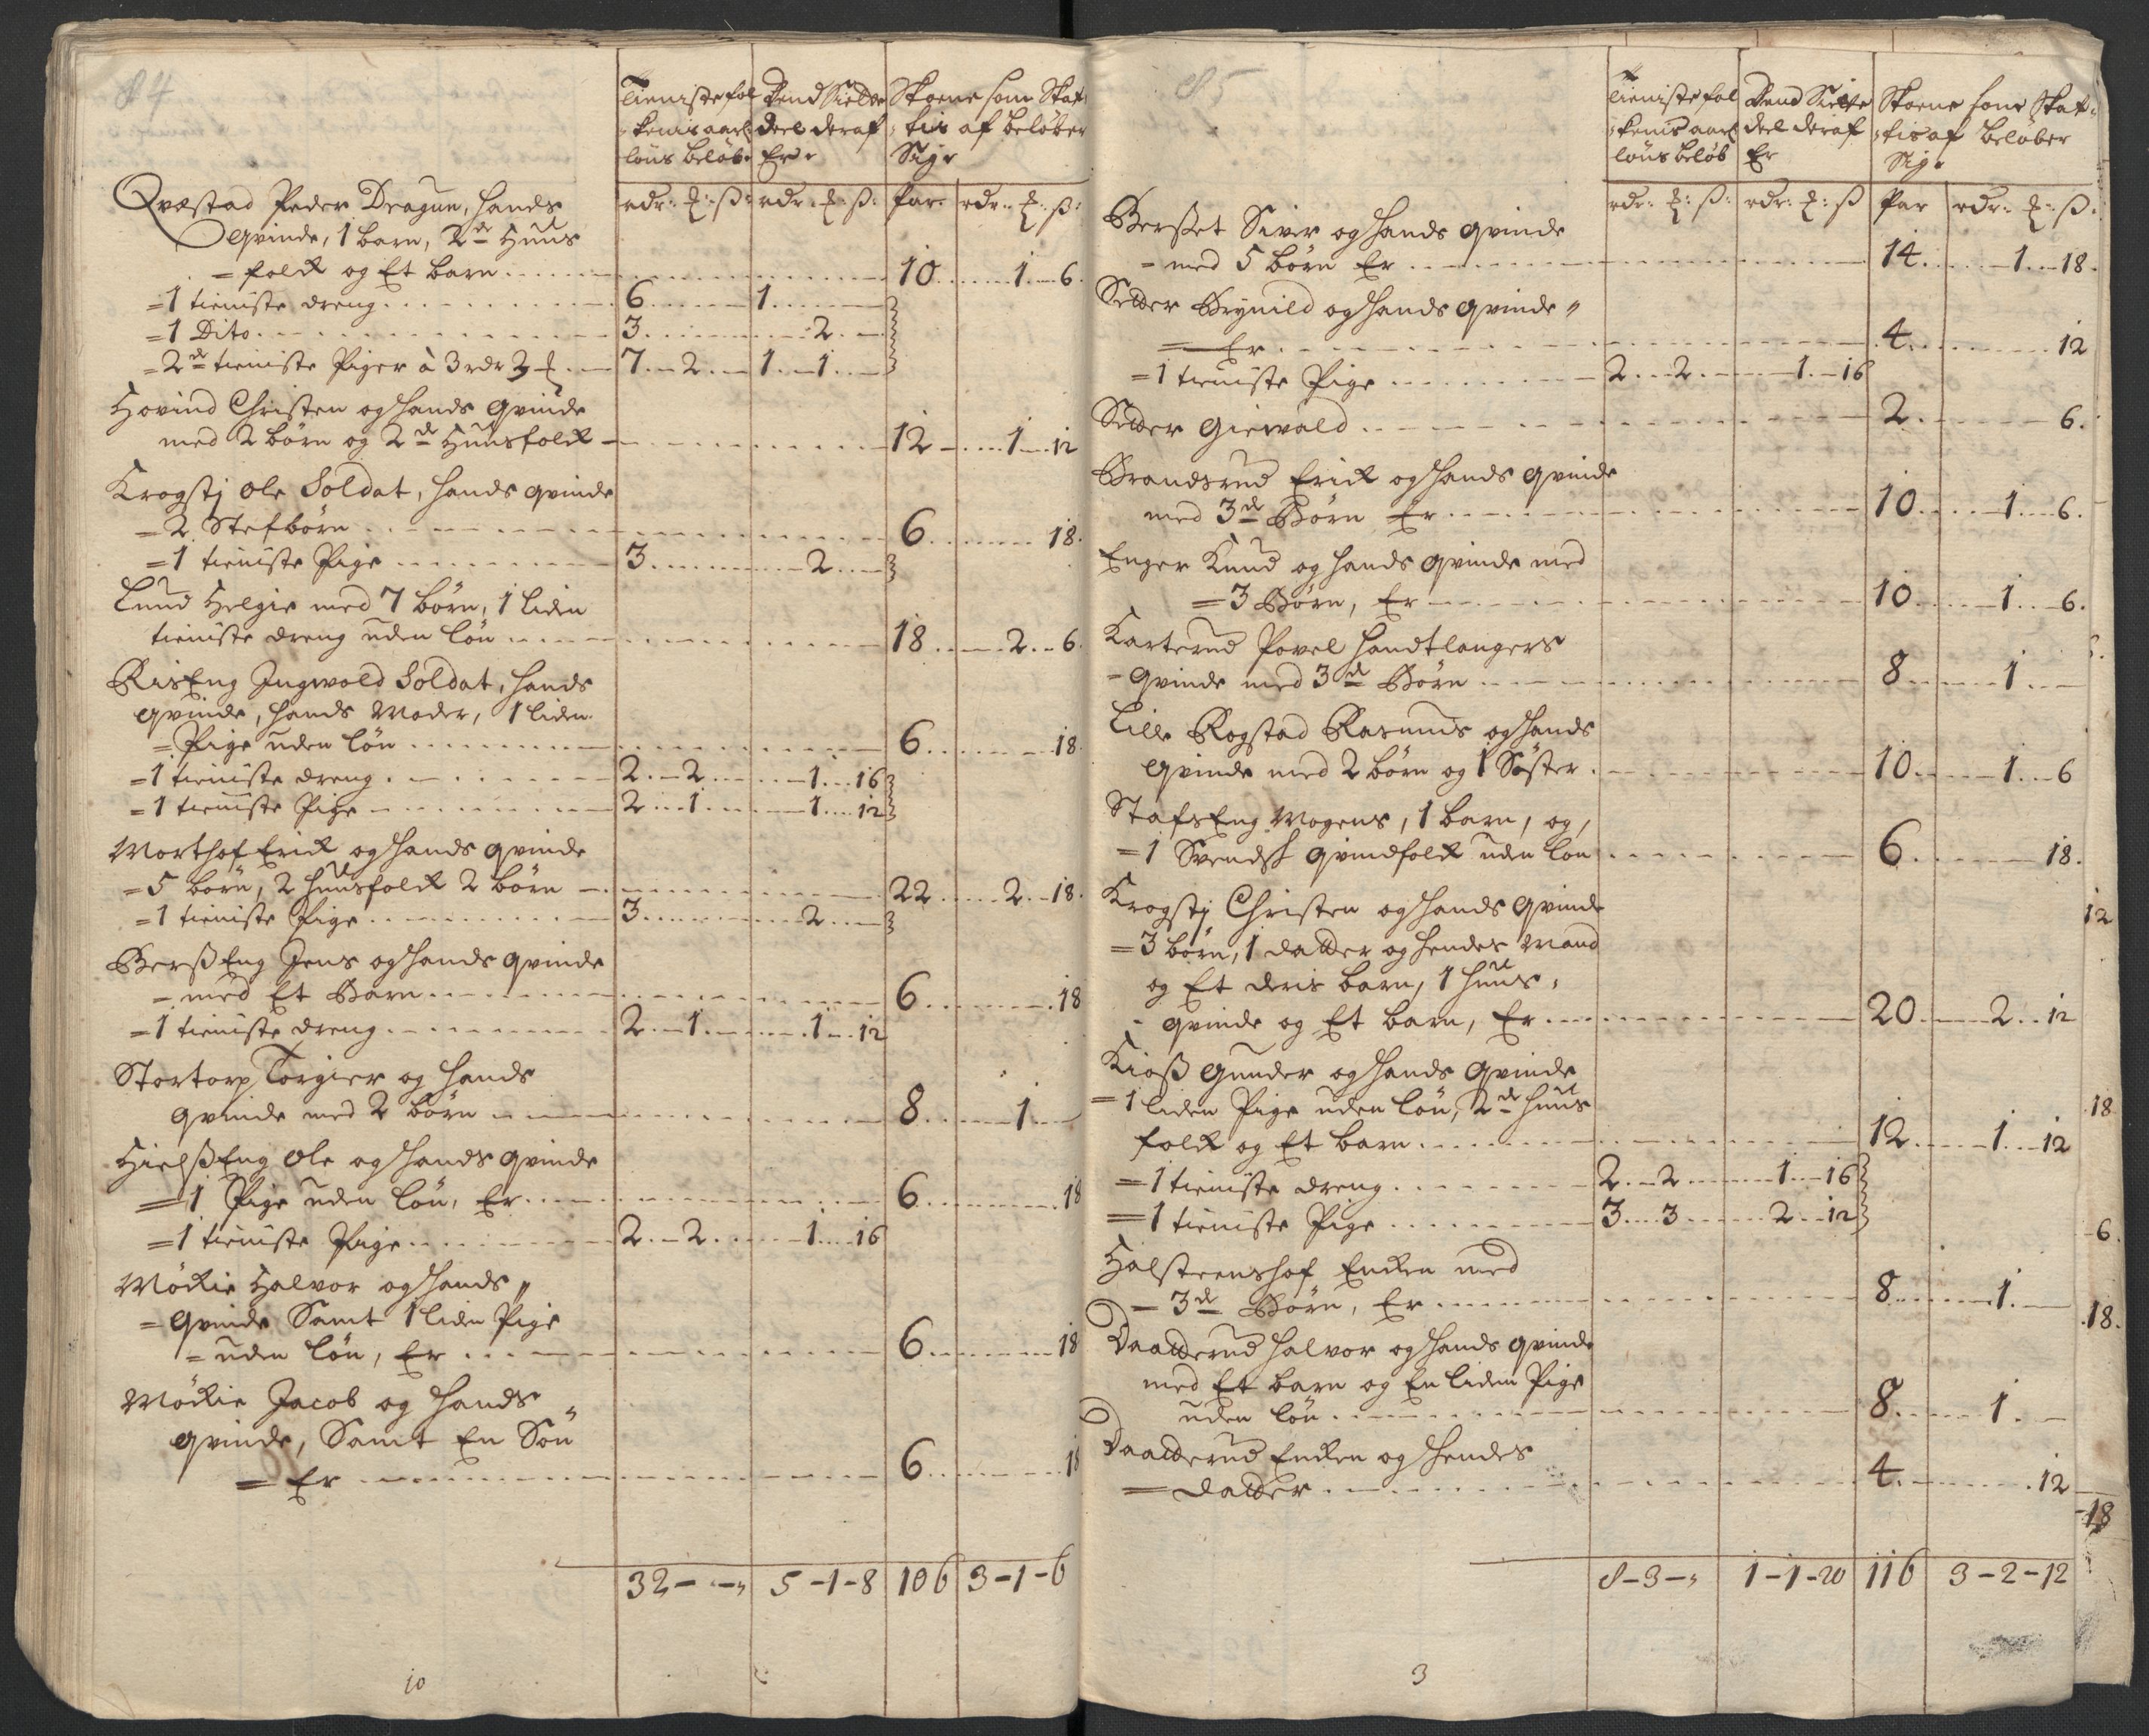 84
Tienistefol Dend Siette Skoene som Skat
kenis aarl: deel deraf tis af beløber
løns beløb. Er Sig
rdr: ₰: ß: rdr: ₰: ß: Par. rdr: ₰: ß:
Qvæstad Peder Dragun, hands
Qvinde, 1 barn, 2de Huus
= folck og Et barn 10 1 6
= 1 tieniste dreng 6 1
= 1 Dito 3 2
= 2de tieniste Piger à 3 rdr 3 ₰ 7 2 1 1
Hovind Christen og hands qvinde
med 2 børn og 2de Huusfolck 12 1 12
Krogstj Ole Soldat, hands qvinde
= 2 Stefbørn 6 18
= 1 tieniste Pige 3 2
Lund Helgie med 7 børn, 1 liden
tieniste dreng uden løn 18 2 6
RisEng Ingwold Soldat, hands
qvinde, hands Moder, 1 liden
= Pige uden løn 6 18
= 1 tieniste dreng 2 2 1 16
= 1 tieniste Pige 2 1 1 12
Morthof Erick og hands qvinde
= 5 børn, 2 huusfolck 2 børn 22 2 18
= 1 tieniste Pige 3 2
BerßEng Jens og hands qvinde
= med Et Barn 6 18
= 1 tieniste dreng 2 1 1 12
Stortorp Torgier og hands
qvinde med 2 børn 8 1
HielßEng Ole og hands qvinde
= 1 Pige uden løn, Er 6 18
= 1 tieniste Pige 2 2 1 16
Mørkie Halvor og hands
= Qvinde Samt 1 liden Pige
= uden løn, Er 6 18
Mørkie Jacob og hands
qvinde, Samt En Søn
= Er 6 18
32 - - 5 - 1 - 8 106 3 - 1 - 6
10
85
Tieniste fol Dend Siette Skoene som Skat
kenis aarl deel deraf tis af beløber
løns beløb Er Sig
rdr: ₰: ß: rdr: ₰: ß Par rdr: ₰: ß.
Berßet Siver og hands qvinde
= med 5 børn Er 14 1 18
Setter Brynild og hands qvinde
= Er 4 12
= 1 tieniste Pige 2 2 1 16
Setter Giewald 2 6
Brandsrud Erick og hands qvinde
med 3de Børn Er 10 1 6
Enger Knud og hands qvinde med
= 3 Børn, Er 10 1 6
Karterud Povel handtlangers
- Qvinde med 3de Børn 8 1
Lille Rogstad Rasmus og hands
Qvinde med 2 børn og 1 Søster 10 1 6
StafsEng Mogens, 1 barn, og,
= 1 Svendsk qvindfolck uden løn 6 18
Krogstj Christen og hands qvinde
= 3 børn, 1 datter og hendes Mand
og Et deris barn, 1 huus
- qvinde og Et barn, Er 20 2 12
Kioß Gunder og hands Qvinde
= 1 liden Pige uden løn, 2de huus
folck og Et barn 12 1 12
= 1 tieniste dreng 2 2 1 16
= 1 tieniste Pige 3 3 2 12
Holsteenshof Encken med
= 3de Børn, Er 8 1
Daatterud Halvor og hands qvinde
med Et barn og En liden Pige
uden løn 8 1
Daatterud Encken og hendes
= datter 4 12
8 - 3 - 1 - 1 - 20 116 3 - 2 - 12
3
12
18
6
18
18